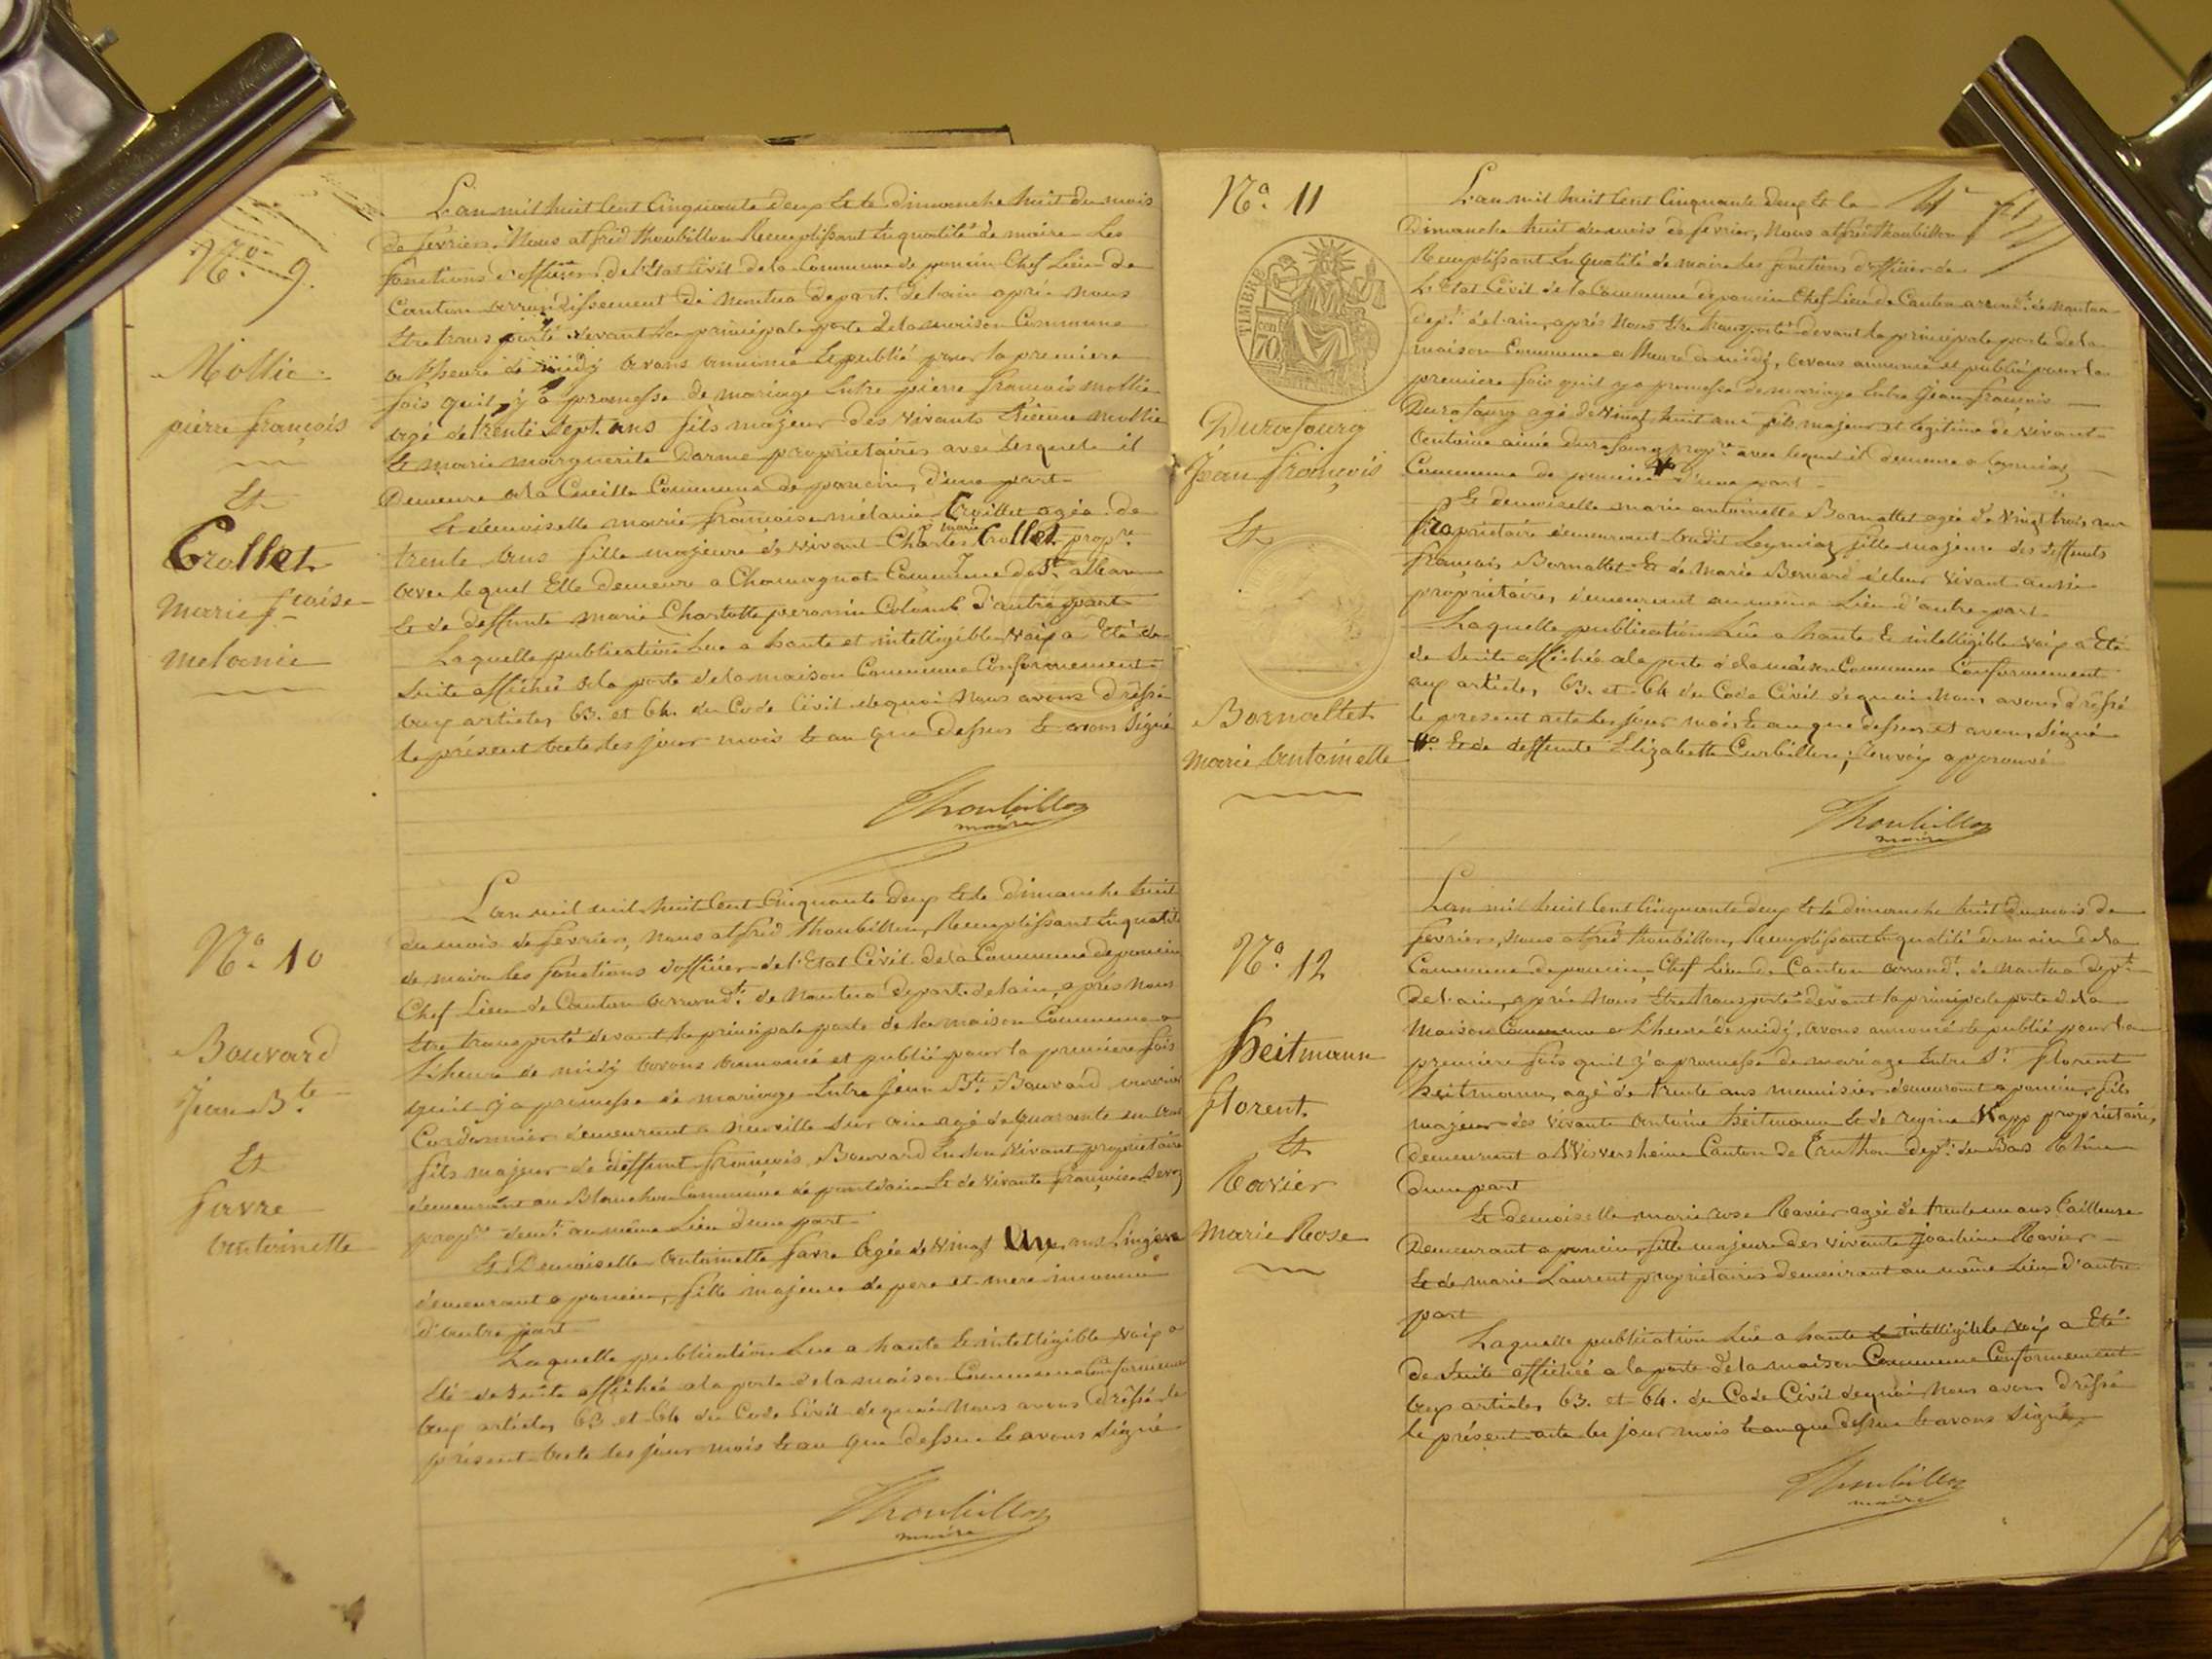 No. 9.
Mollie
pierre françois
Et
Crollet
Marie fcaise
melanie
L'an mil huit Cent Cinquante deux Et le dimanche huit du mois
de fevrier. Nous alfred thoubillon Remplissant En qualité de maire les
fonctions d'officier de l'Etat Civil de la Commune de poncin Chef Lieu de
Canton arrondissement de nantua depart. de l'ain après nous
Etre transporté devant la principale porte de la maison Commune
a l'heure de midy avons annoncé Et publié pour la premiere
fois qu'il y a promesse de mariage Entre pierre françois mollie
agé de trente Sept ans fils majeur des vivants Etienne mollie
Et marie marguerite Darme propriétaires avec lesquels il
Demeure a la Cueille Commune de poncin, d'une part
Et demoiselle marie françoise mélanie Crollet agée de
trente ans fille majeure de vivant Charles marie Crollet propre
avec lequel Elle demeure a Chamagnat Commune de St. alban
Et de deffunte marie Charlotte peronine Colomb d'autre part
Laquelle publication Lue a haute et intelligible voix a Eté de
Suite affichée a la porte de la maison Commune Conformement
aux articles 63. et 64. du Code Civil de quoi Nous avons dréssé
le présent acte les jour mois Et an que dessus Et avons Signé
Thoubillon
maire
No. 10
Bouvard
Jean Bte
Et
favre
antoinette
L'an mil mil huit Cent Cinquante deux Et le dimanche huit
du mois de fevrier, nous alfred thoubillon, Remplissant En qualité
de maire les fonctions d'officier de l'Etat Civil de la Commune de poncin
Chef Lieu de Canton arrondt. de Nantua depart. de l'ain, après nous
Etre transporté devant la principale porte de la maison Commune a
L'heure de midy avons annoncé et publié pour la premiere fois
qu'il y a promesse de mariage Entre Jean Bte. Bouvard ouvrier
Cordonnier demeurant a neuville sur ain agé de quarante un ans
fils majeur de deffunt françois Bouvard En son vivant propriétaire
demeurant au Blanchon Commune de pontdain Et de vivante françoise
propre demt. au même Lieu d'une part
Et Demoiselle antoinette favre Agée de vingt Un ans Lingére
demeurant a poncin, fille majeure de pere et mere inconnus
d'autre part
Laquelle publication Lue a haute Et intelligible voix a
Eté de Suite affichée a la porte de la maison Commune Conformement
aux articles 63 et 64 du Code Civil de quoi Nous avons Dréssé le
présent acte les jour mois Et an que dessus Et avons Signé
Thoubillon
maire
No. 11
TIMBRE
70
Durafourg
Jean françois
Et
Bornallet
marie antoinette
L'an mil huit Cent Cinquante deux Et le
Dimanche huit du mois de fevrier, Nous alfred thoubillon
Remplissant En qualité de maire les fonctions d'officier de
L'Etat Civil de la Commune de poncin Chef Lieu de Canton arrondt. de Nantua
dept. de l'ain, après Nous Etre transporté devant la principale porte de la
maison Commune a l'heure de midy, avons annoncé et publié pour la
premiere fois qu'il y a promesse de mariage Entre Jean françois
Durafourg agé de Vingt huit ans fils majeur et légitime de vivant
antoine aimé durafourg propre avec lequel il demeure a Leymiaz
Commune de poncin d'une part
Et demoiselle marie antoinette Bornallet agée de Vingt trois ans
Propriétaire demeurant audit Leymiaz fille majeure des deffunts
françois Bornallet Et de Marie Bernard de leur vivant aussi
propriétaires demeurant au même Lieu d'autre part
Laquelle publication Lüe a haute Et intelligible voix a Eté
de Suite affichée a la porte de la maison Commune Conformement
aux articles 63. et 64 du Code Civil de quoi Nous avons dréssé
le présent acte les jour mois Et an que dessus et avons, Signé
Et de deffunte Elizabeth Curbillon; Renvoy approuvé
Thoubillon
maire
No. 12
Heitmann
florent.
Et
Ravier
Marie Rose
L'an mil huit Cent Cinquante deux Et le dimanche huit du mois de
fevrier, nous alfred thoubillon, Remplissant En qualité de maire de la
Commune de poncin, Chef Lieu de Canton arrondt. de nantua dept.
De l'ain, après Nous Etre transporté devant la principale porte de la
Maison Commune a L'heure de midy, avons annoncé Et publié pour la
premiere fois qu'il y a promesse de mariage Entre Sr. florent
heitmann, agé de trente ans menuisier demeurant a poncin, fils
majeur des vivants antoine heitmann Et de regine Wapp propriétaires,
demeurant a Canton de dept. du Bas Rhin
d'une part
Et demoiselle marie rose Ravier agée de trente un ans tailleuse
Demeurant a poncin, fille majeure des vivants Joachim Ravier
Et de marie Laurent propriétaires demeurant au même Lieu d'autre
part
Laquelle publication Lüe a haute Et intelligible voix a Eté
De Suite affichée a la porte de la maison Commune Conformement
aux articles 63. et 64. du Code Civil de quoi Nous avons Dréssé
le présent acte les jour mois Et an que dessus Et avons Signé
Thoubillon
maire